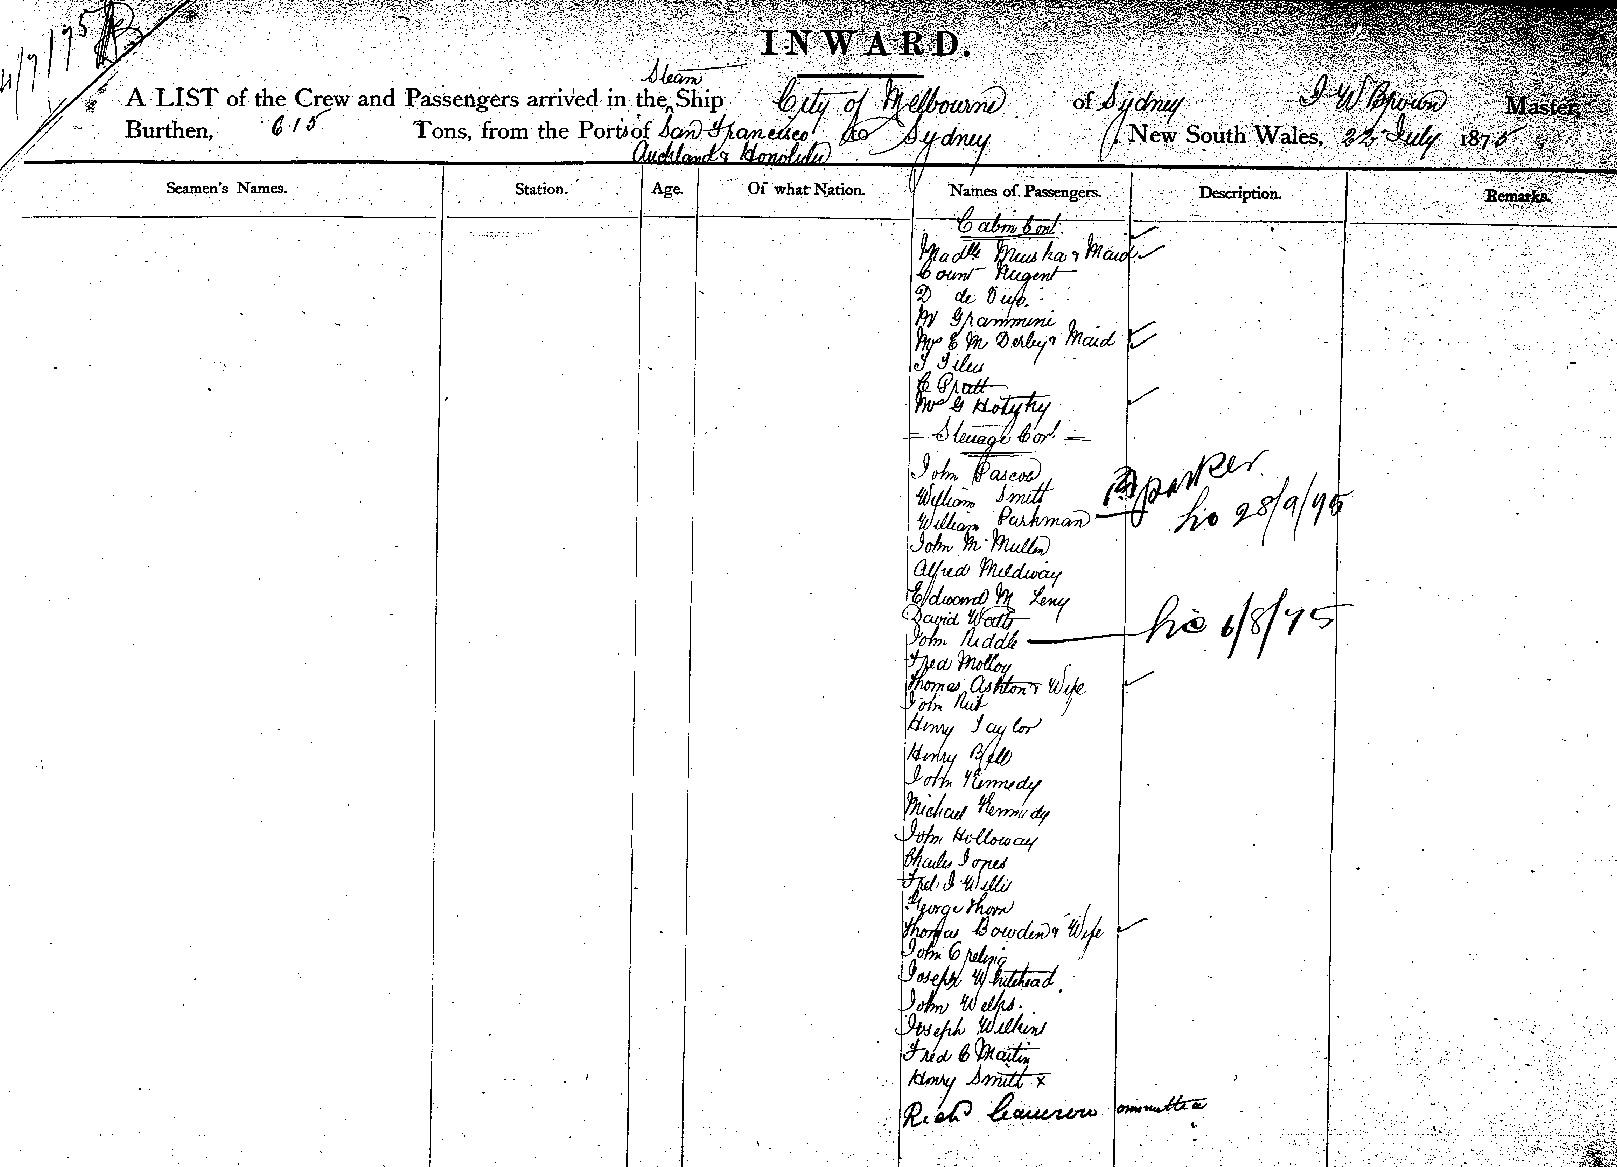 INWARD.
Steam
A LIST of the Crew and Passengers arrived in the Ship City of Melbourne of Sydney J W Brown Master,
Burthen, 615 Tons, from the Ports of San Francisco to Sydney New South Wales, 22 July 1875
Auckland & Honolulu
Seamen's Names. Station. Age. Of what Nation. Names of Passengers. Description. Remarks.
Cabin Cont.
Madlle & Maid
Count Nugent
D de
Mr Grammini
Mrs E M Derby & Maid
J
C Pratt
Mrs G
Steerage Cont
John Pascoe
William Smith
William Parkman
parker
28/9/95
John McMullen
Alfred Mildway
Edward M Leny
David Watts
John Riddle
6/8/75
Fred Molloy
Thomas Ashton & Wife
John
Henry Taylor
Henry Bell
John Kennedy
Michael Kennedy
John Holloway
Charles Jones
Fred J Willis
George Thom
Thomas Bowden & Wife
John
Joseph Whitehead.
John Welps.
Joseph Wilkin
Fred C Martin
Henry Smith x
Richd Cameron ommitted